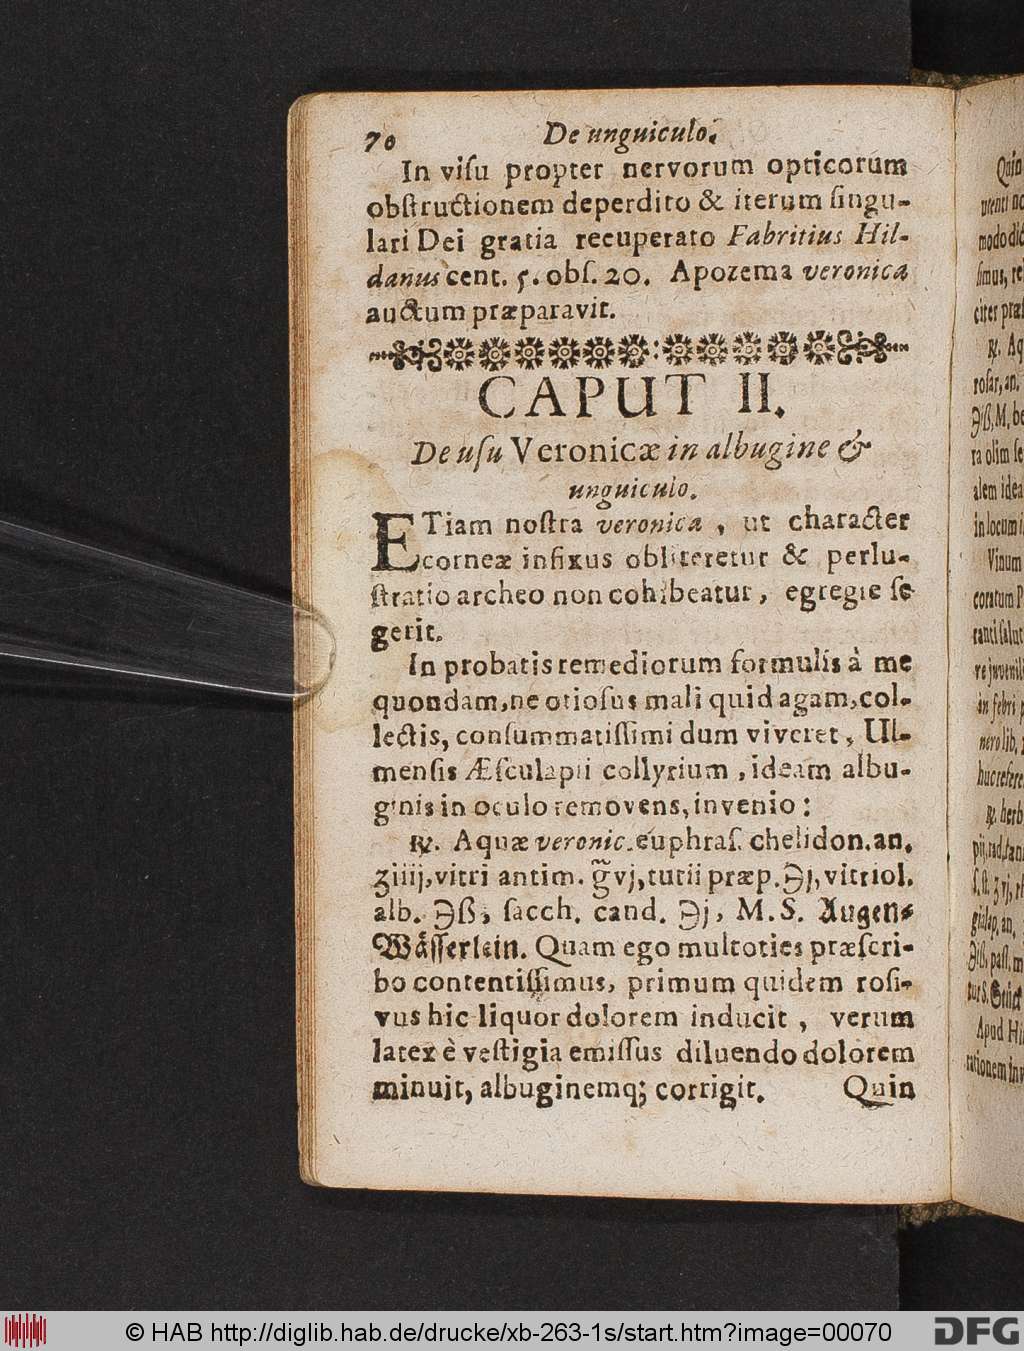 70 De unguiculo.
In visu propter nervorum opticorum
obstructionem deperdito & iterum singu-
lari Dei gratia recuperato Fabritius Hil-
danus cent. 5. obs. 20. Apozema veronica
auctum præparavit.
CAPUT II.
De usu Veronicæ in albugine &
unguiculo.
ETiam nostra veronica, ut character
corneæ infixus obliteretur & perlu-
stratio archeo non cohibeatur, egregie se
gerit.
In probatis remediorum formulis à me
quondam, ne otiosus mali quid agam, col-
lectis, consummatissimi dum viveret, Ul-
mensis Æsculapii collyrium, ideam albu-
ginis in oculo removens, invenio:
℞. Aquæ veronic. euphras. chelidon. an.
ʒiiij, vitri antim. g̃vj, tutii præp. ℈j, vitriol.
alb. ℈ß, sacch. cand. ℈j, M. S. Augen-
Wässerlein. Quam ego multoties præscri-
bo contentissimus, primum quidem rosi-
vus hic liquor dolorem inducit, verum
latex è vestigia emissus diluendo dolorem
minuit, albuginemq; corrigit. Quin
Quin
modo dic
simus, re
citer præs
℞. Aq
rosar, an.
℈iß, M. be
ra olim se
alem idea
in locum i
Vinum
coratum P
tanti salut
re juvenili
an febri p
nero lib.
huc refere
℞. herb
gialap. an,
℈iß, pass. m
Apud Hi
rationem inv
© HAB http://diglib.hab.de/drucke/xb-263-1s/start.htm?image=00070 DFG